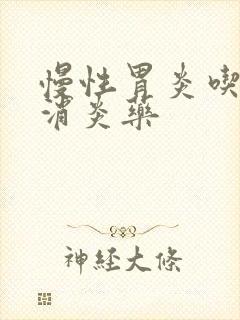 慢性胃炎喫
消炎藥
神經大條